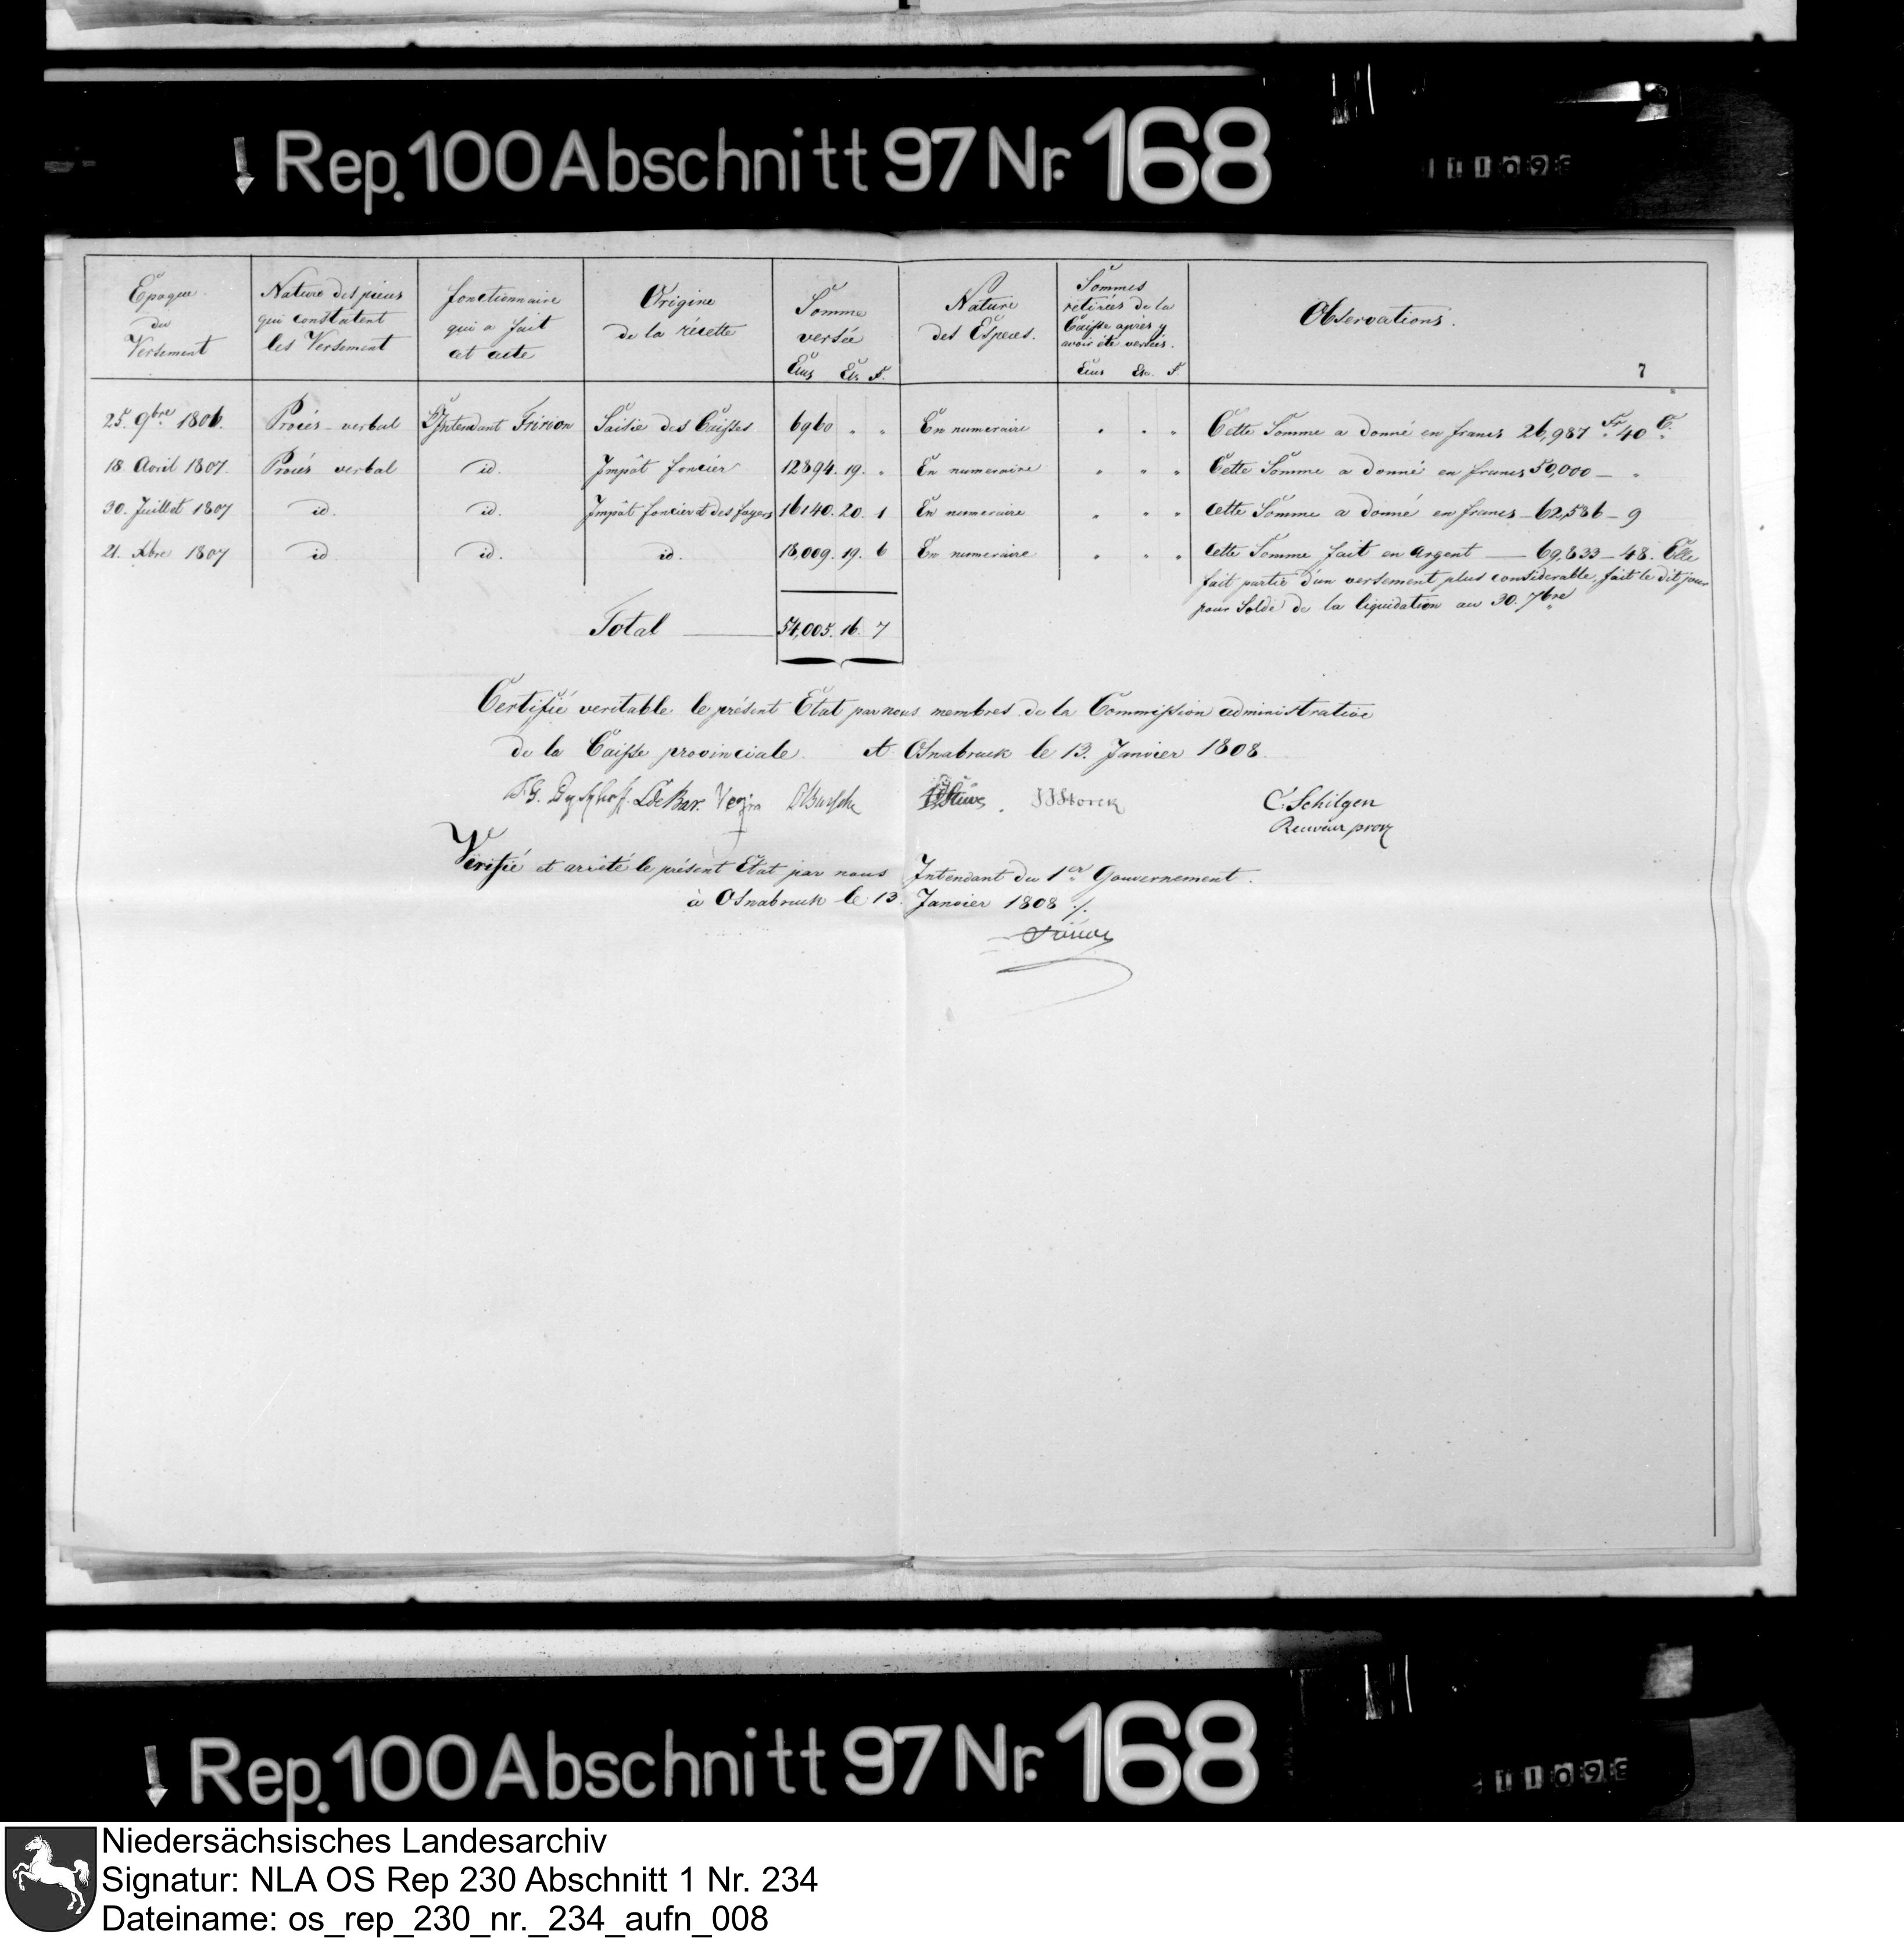 Rep. 100 Abschnitt 97 Nr. 168
Epoque du Versement
Nature des pieces qui constatent les Versement
fonctionnaire qui a fait cet acte
Origine de la récette
Somme versée
Ecus Es. F.
Nature des Especes.
Sommes retirées de la Caisse après y avoir été versées.
Ecus Es. F.
Observations.
7
25. 9bre 1806. Procés-verbal L'Intendant Fririon Saisie des Caisses 6960 " " En numeraire " " " Cette Somme a donné en francs 26,987 Fr 40 C.
18. Avril 1807. Procés verbal id. Impôt foncier 12894. 19. " En numeraire " " " Cette Somme a donné en francs 50,000 — "
30. Juillet 1807 id. id. Impôt foncier et des foyers 16140. 20. 1 En numeraire " " " Cette Somme a donné en francs — 62,586 — 9
21. Xbre 1807 id id. id. 18,009. 19. 6 En numeraire " " " Cette Somme fait en Argent — 69,833 — 48. Elle
fait partie d'un versement plus considerable, fait le dit jour
pour Solde de la liquidation au 30. 7bre
Total — 54,005. 16. 7
Certifié veritable le présent Etat par nous membres de la Commission administrative
de la Caisse provinciale. A Osnabruck le 13. Janvier 1808.
Vezin Stüve JJStorck C. Schilgen
Receveur prov
Verifié et arrêté le présent Etat par nous Intendant du 1er Gouvernement.
à Osnabruck le 13. Janvier 1808 ./.
Rep. 100 Abschnitt 97 Nr. 168
Niedersächsisches Landesarchiv
Signatur: NLA OS Rep 230 Abschnitt 1 Nr. 234
Dateiname: os_rep_230_nr._234_aufn_008